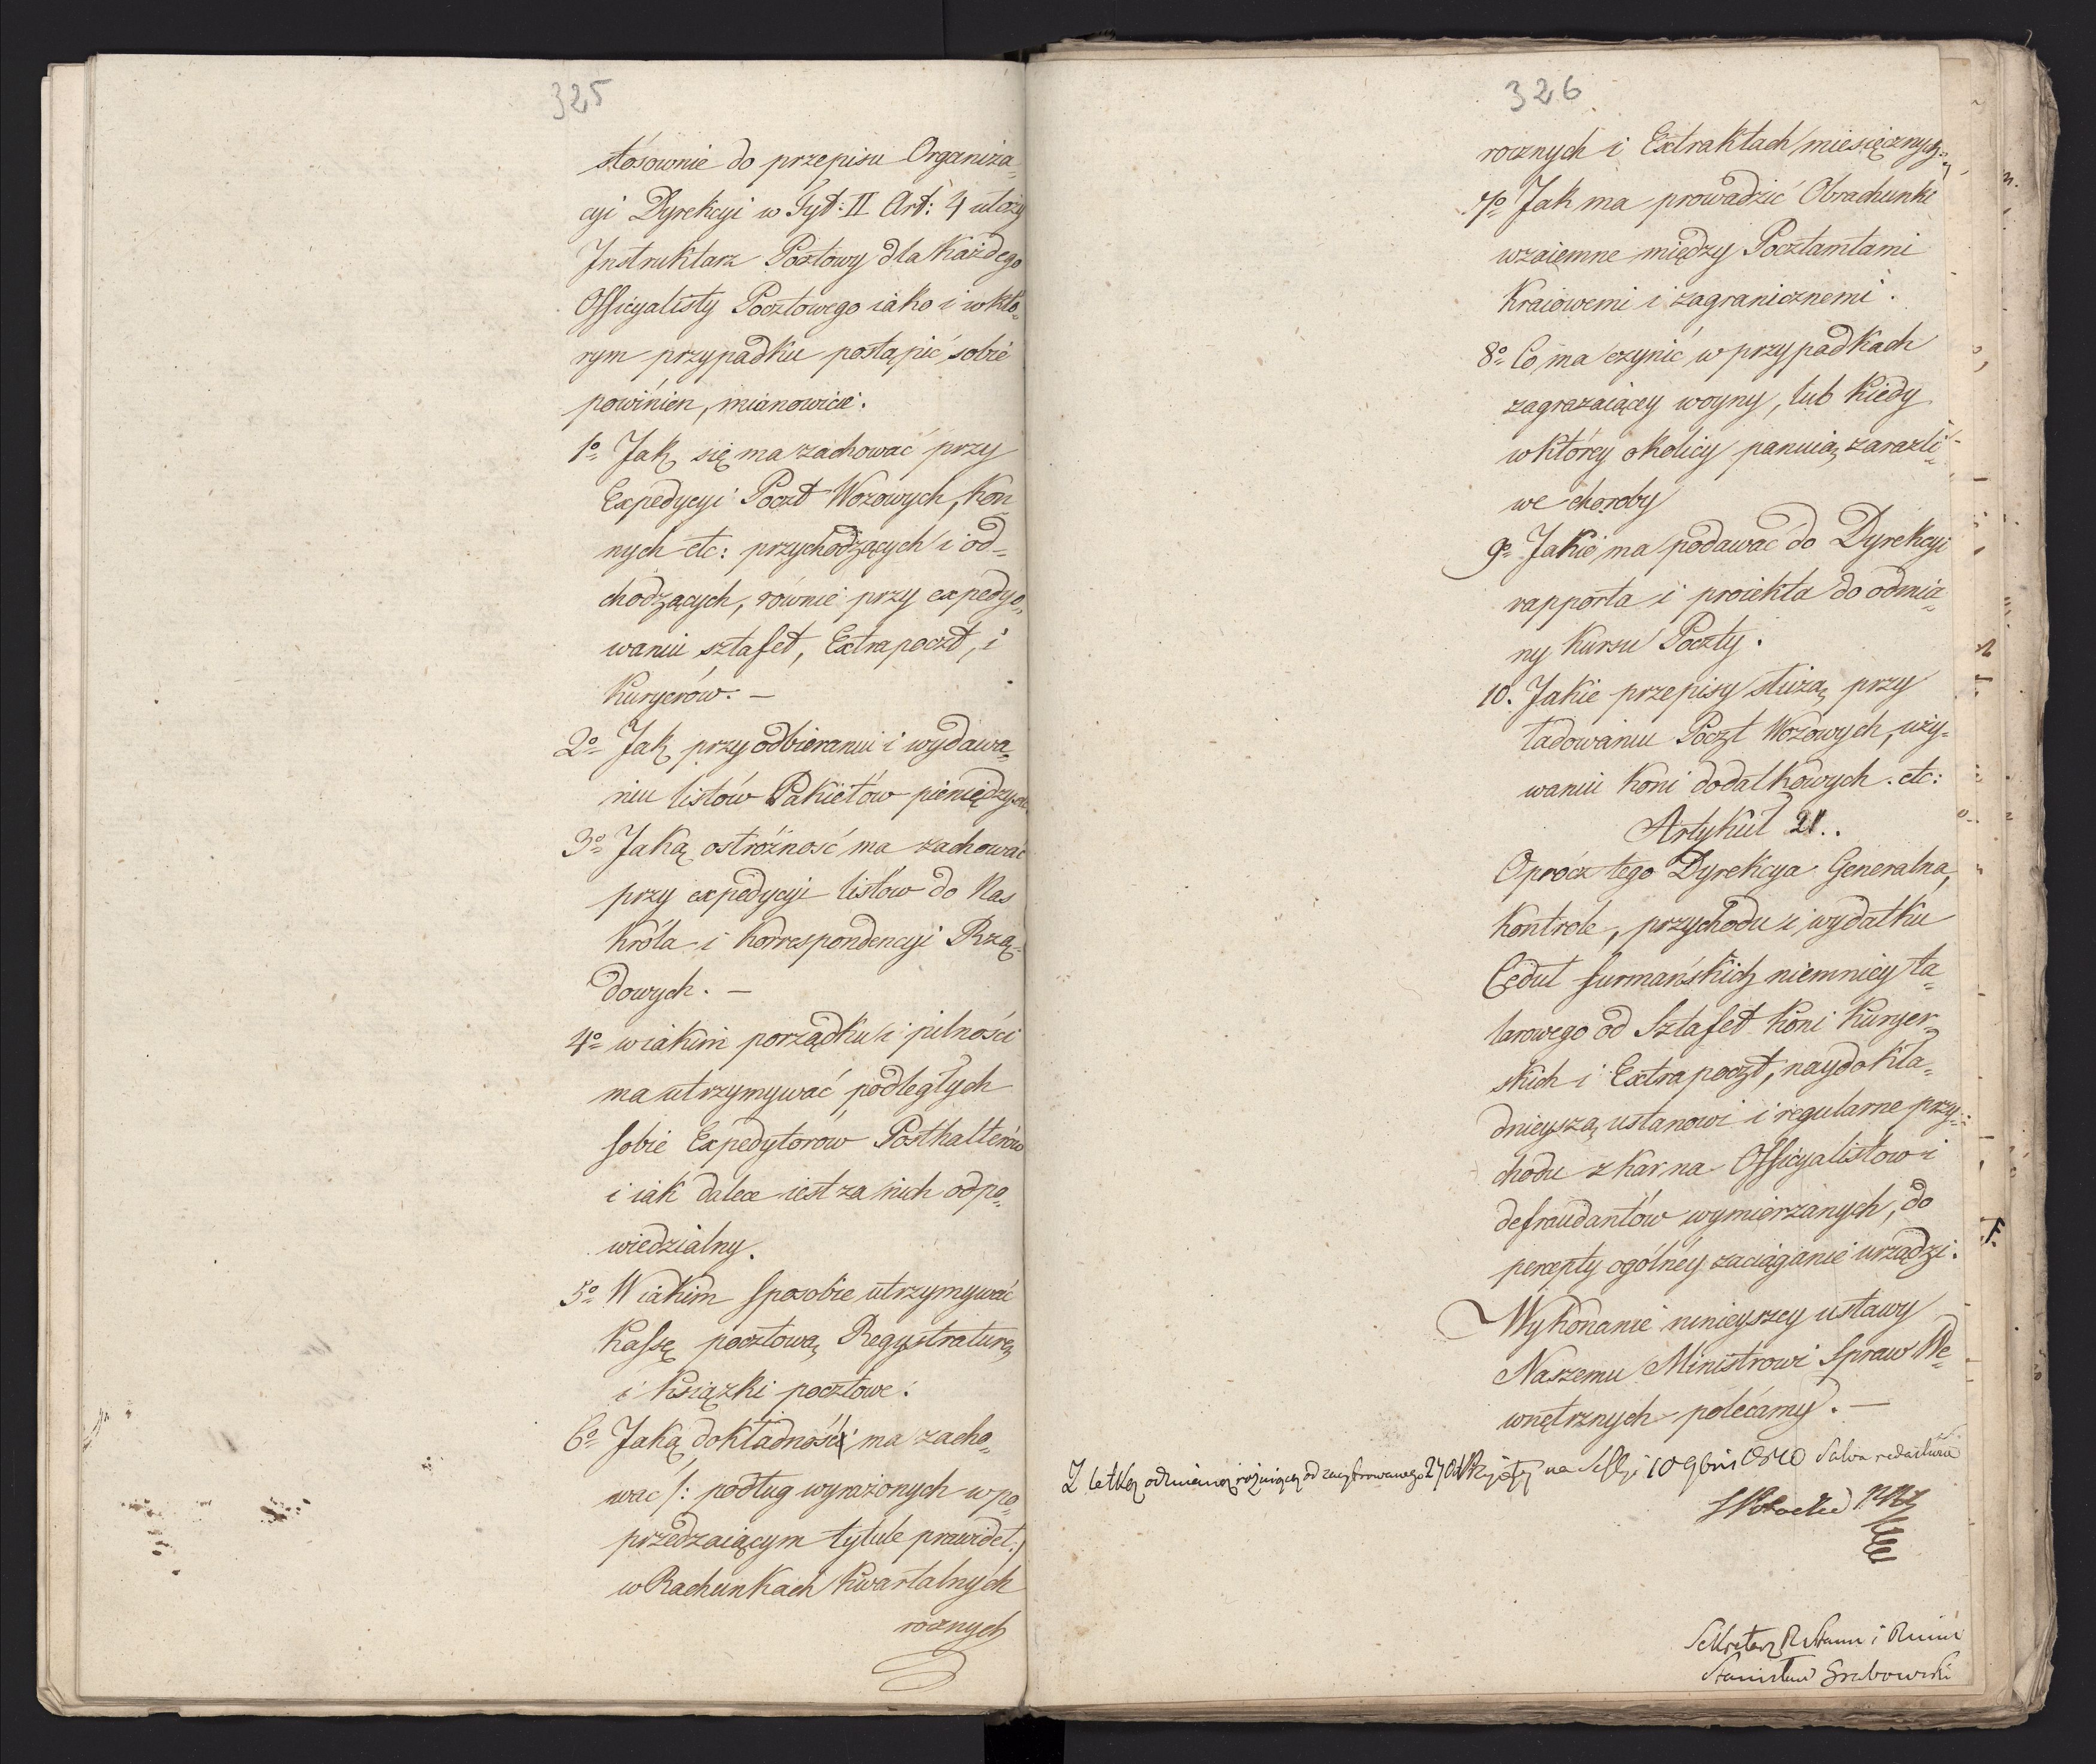 325
stósownie do przepisu Organiza„
cyi Dyrekcyi w Tyt: II Art: 4 ułoży
Instruktarz Pocztowy dla każdego
Officyalisty Pocztowego iako i w któ„
rym przypadku postąpić sobie
powinien, mianowicie.
1o Jak się ma zachować przy
Expedycyi Poczt Wozowych, kon„
nych etc: przychodzących i od„
chodzących, równie przy expedyo„
waniu sztafet, Extrapoczt, i
Kuryerów. —
2o Jak przy odbieraniu i wydawa„
niu listów Pakietów pieniędzy etc
3o Jaką ostróżność ma zachować
przy expedycyi listów do Nas
Króla i korrespondencyi Rzą„
dowych. —
4o w iakim porządku i pilności
ma utrzymywać podległych
sobie Expedytorów Posthalterów
i iak dalece iest za nich odpo„
wiedzialny.
5o W iakim sposobie utrzymywać
Kassę pocztową, Regystraturę,
i Książki pocztowe.
6o Jaką dokładność ma zacho„
wać /: podług wyrażonych w po„
przedzaiącym tytule prawideł :/
w Rachunkach Kwartalnych
rocznych
326
rocznych i Extraktach miesięcznych
7o Jak ma prowadzić Obrachunki
wzaiemne między Pocztamtami
Kraiowemi i zagranicznemi.
8o Co ma czynić w przypadkach
zagrażaiącey woyny, lub kiedy
w którey okolicy panuią zaraźli„
we choroby
9o Jakie ma podawać do Dyrekcyi
rapporta i proiekta do odmia„
ny kursu Poczty.
10. Jakie przepisy służą przy
ładowaniu Poczt Wozowych, uży„
waniu koni dodatkowych. etc:
Artykuł 21..
Oprócz tego Dyrekcya Generalna,
kontrole, przychodu i wydatku
Cedut furmańskich niemniey ta„
larowego od Sztafet koni Kuryer„
skich i Extrapoczt, naydokła„
dnieyszą ustanowi i regularne przy„
chodu z kar na Officyalistów i
defraudantów wymierzanych, do
percepty ogólney zaciąganie urządzi.
Wykonanie ninieyszey ustawy
Naszemu Ministrowi Spraw We„
wnętrznych polécamy. —
Z lekką odmianą różniącą od zacyfrowanego 27 Przyięty na Sessyi 10 9bris 1810 Salva redactione
Sekretarz R Stanu i Minis
Stanisław Grabowski